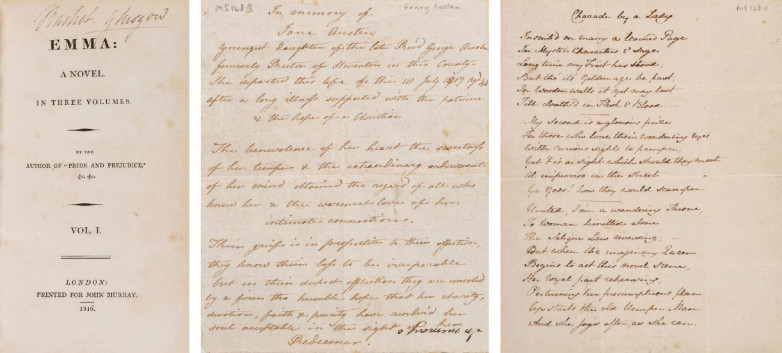 Basket Glasgow
EMMA:
A NOVEL.
IN THREE VOLUMES.
BY THE
AUTHOR OF "PRIDE AND PREJUDICE,"
&c. &c.
VOL. I.
LONDON:
PRINTED FOR JOHN MURRAY.
1816.
MS1263
Henry Austen
In memory of
Jane Austen
Youngest daughter of the late Revd George Austen
formerly Rector of Steventon in this County.
She departed this life on the 18 July 1817 aged 41
after a long illness supported with the patience
& the hope of a Christian
The benevolence of her heart the sweetness
of her temper & the extraordinary endowments
of her mind obtained the regard of all who
knew her & the warmest love of her
intimate connections.
Their grief is in proportion to their affection,
they know their loss to be irreparable
but in their deepest affliction they are consoled
by a firm tho humble hope that her charity,
devotion, faith & purity have render'd her
soul acceptable in the sight of her
Redeemer.
MS1263
Charade by a Lady
Inscrib'd on many a learned Page
In Mystic Characters & Sage
Long time my First has stood;
But tho' its Golden age be past,
In wooden walls it yet may last
Till cloath'd in Flesh & Blood.
My Second is a glorious prize
For those who love their wondering eyes
With curious sights to pamper;
Yet 'tis a sight which should they meet
All improviso in the street
Ye Gods! how they would scamper.
United, I'm a wandering Throne,
To Woman limitted alone
The Salique Law reversing;
But when the imaginary Queen
Begins to act this novel scene,
Her royal part rehearsing,
Overturning her presumptuous plan
Up starts the old Usurper Man
And she jogs after as she can.